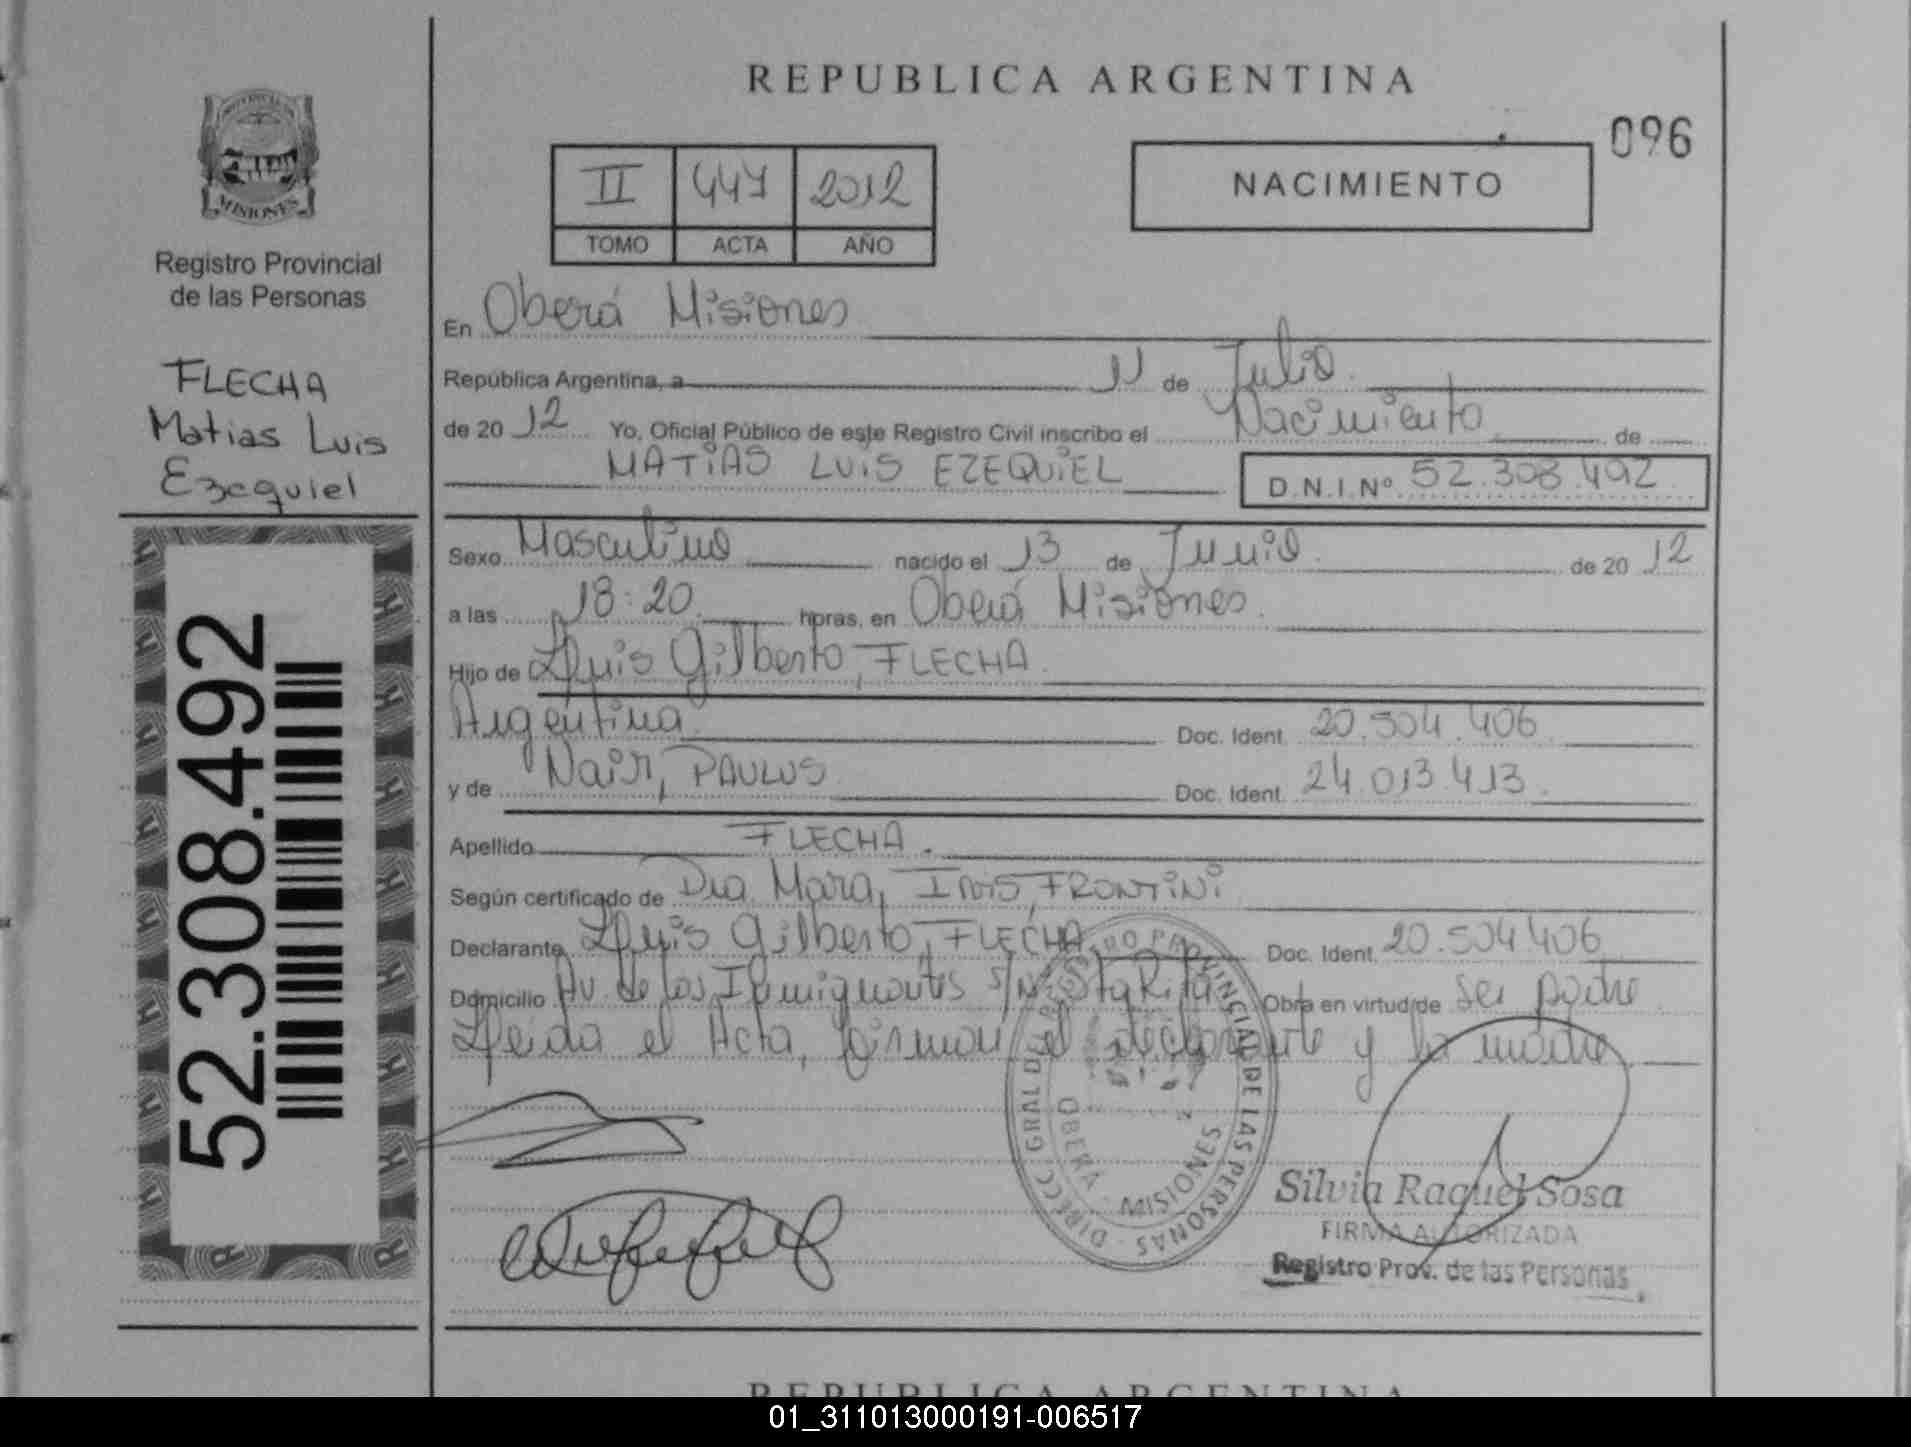 REPUBLICA ARGENTINA
096
II 447 2012
TOMO ACTA AÑO
NACIMIENTO
PROVINCIA DE
MISIONES
Registro Provincial
de las Personas
FLECHA
Matias Luis
Ezequiel
52.308.492
En Oberá Misiones
República Argentina, a 11 de Julio
de 20 12 Yo, Oficial Público de este Registro Civil inscribo el Nacimiento de
MATiAS LUiS EZEQUiEL D.N.I.Nº 52.308.492
Sexo Masculino nacido el 13 de Junio de 20 12
a las 18:20 horas, en Oberá Misiones
Hijo de Luis Gilberto, FLECHA
Argentina Doc. Ident. 20.504.406
y de Nair, PAULUS Doc. Ident. 24.013.413
Apellido FLECHA.
Según certificado de Dra Mara, FRONTiNi
Declarante Luis Gilberto, FLECHA Doc. Ident. 20.504.406
Domicilio Av. de los Inmigrantes s/Nº Sta Rita Obra en virtud de Ser padre
Leída el Acta, firman el declarante y la madre
DIRECC. GRAL DEL REGISTRO PROVINCIAL DE LAS PERSONAS
OBERA MISIONES
Silvia Raquel Sosa
FIRMA AUTORIZADA
Registro Prov. de las Personas
REPUBLICA ARGENTINA
01_311013000191-006517